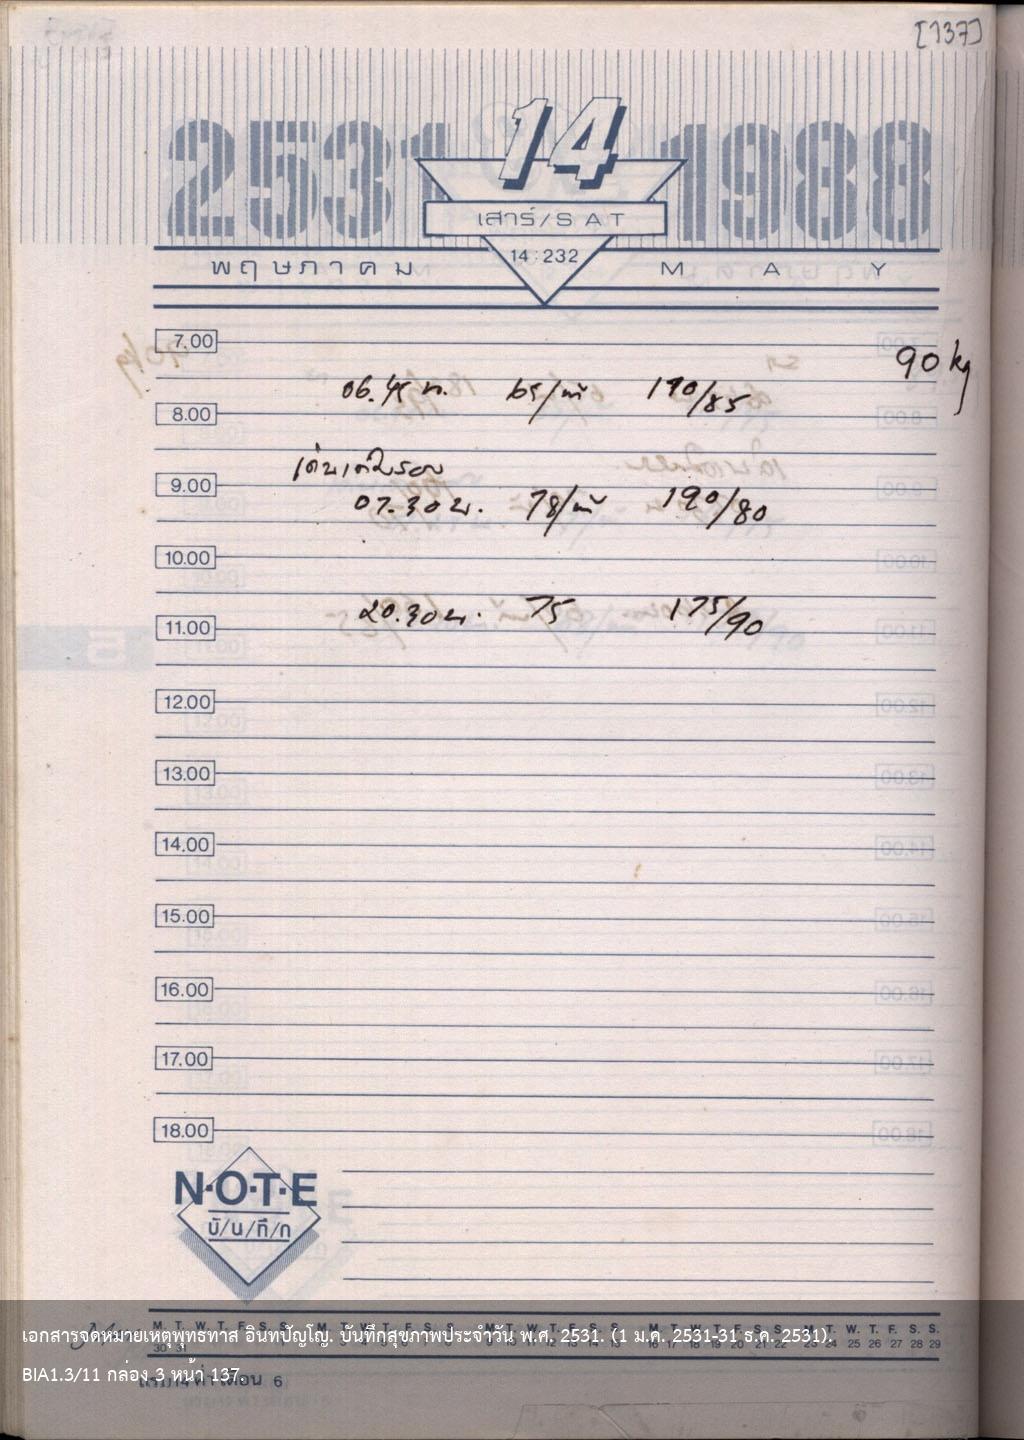 [137]
2531 14 1988
เสาร์/SAT
14:232
พฤษภาคม MAY
7.00
90 kg
06.45 น. 65/นาที 190/85
8.00
9.00
07.30 น. 78/นาที 190/80
10.00
20.30 น. 75 175/90
11.00
12.00
13.00
14.00
15.00
16.00
17.00
18.00
N·O·T·E
บั/น/ทึ/ก
M. T. W. T. F. S. S. M. T. W. T. F. S. S. M. T. W. T. F. S. S.
30 31 1 9 10 11 12 13 16 17 18 19 20 21 22 23 24 25 26 27 28 29
เอกสารจดหมายเหตุพุทธทาส อินทปัญโญ. บันทึกสุขภาพประจำวัน พ.ศ. 2531. (1 ม.ค. 2531-31 ธ.ค. 2531).
BIA1.3/11 กล่อง 3 หน้า 137.